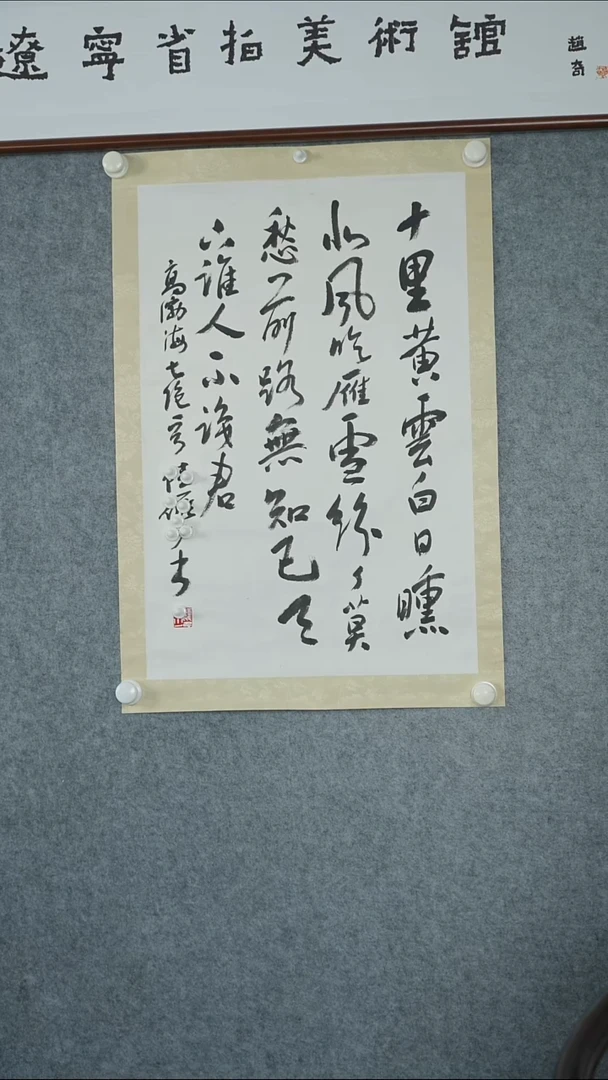 遼寧省拍美術館
趙奇
十里黄雲白日曛
北風吹雁雪紛々莫
愁前路無知己天
下誰人不識君
高渤海七絶 陸儼少書